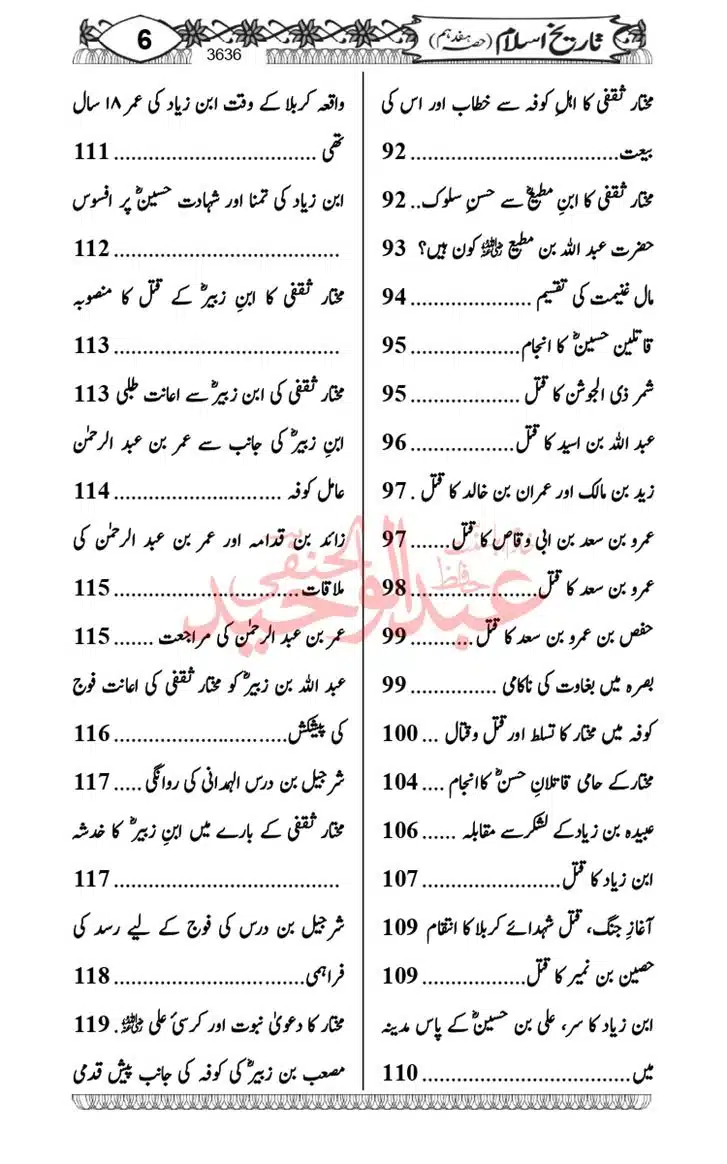 تاریخ اسلام (حصہ ہفدہم)
6
3636
مختار ثقفی کا اہلِ کوفہ سے خطاب اور اس کی
بیعت.................................. 92
مختار ثقفی کا ابنِ مطیعؓ سے حسنِ سلوک.. 92
حضرت عبد اللہ بن مطیع ﷛ کون ہیں؟ 93
مالِ غنیمت کی تقسیم .................... 94
قاتلین حسینؓ کا انجام.................. 95
شمر ذی الجوشن کا قتل .................... 95
عبد اللہ بن اسید کا قتل................... 96
زید بن مالک اور عمران بن خالد کا قتل . 97
عمرو بن سعد بن ابی وقاص کا قتل....... 97
عمرو بن سعد کا قتل....................... 98
حفص بن عمرو بن سعد کا قتل........... 99
بصرہ میں بغاوت کی ناکامی .............. 99
کوفہ میں مختار کا تسلط اور قتل و قتال ... 100
مختار کے حامی قاتلانِ حسنؓ کا انجام .... 104
عبیدہ بن زیاد کے لشکر سے مقابلہ ...... 106
ابن زیاد کا قتل....................... 107
آغازِ جنگ، قتل شہدائے کربلا کا انتقام 109
حصین بن نمیر کا قتل................. 109
ابن زیاد کا سر، علی بن حسینؓ کے پاس مدینہ
میں.................................. 110
واقعہ کربلا کے وقت ابن زیاد کی عمر ۱۸ سال
تھی ................................. 111
ابن زیاد کی تمنا اور شہادت حسینؓ پر افسوس
..................................... 112
مختار ثقفی کا ابنِ زبیرؓ کے قتل کا منصوبہ
..................................... 113
مختار ثقفی کی ابن زبیرؓ سے اعانت طلبی 113
ابنِ زبیرؓ کی جانب سے عمر بن عبد الرحمٰن
عاملِ کوفہ ............................ 114
زائد بن قدامہ اور عمر بن عبد الرحمٰن کی
ملاقات.............................. 115
عمر بن عبد الرحمٰن کی مراجعت ....... 115
عبد اللہ بن زبیرؓ کو مختار ثقفی کی اعانت فوج
کی پیشکش............................ 116
شرجیل بن درس الہدانی کی روانگی ..... 117
مختار ثقفی کے بارے میں ابنِ زبیرؓ کا خدشہ
..................................... 117
شرجیل بن درس کی فوج کے لیے رسد کی
فراہمی................................ 118
مختار کا دعویٰ نبوت اور کرسیٔ علی ﷛. 119
مصعب بن زبیرؓ کی کوفہ کی جانب پیش قدمی
حافظ
عبدالوحید الحنفی